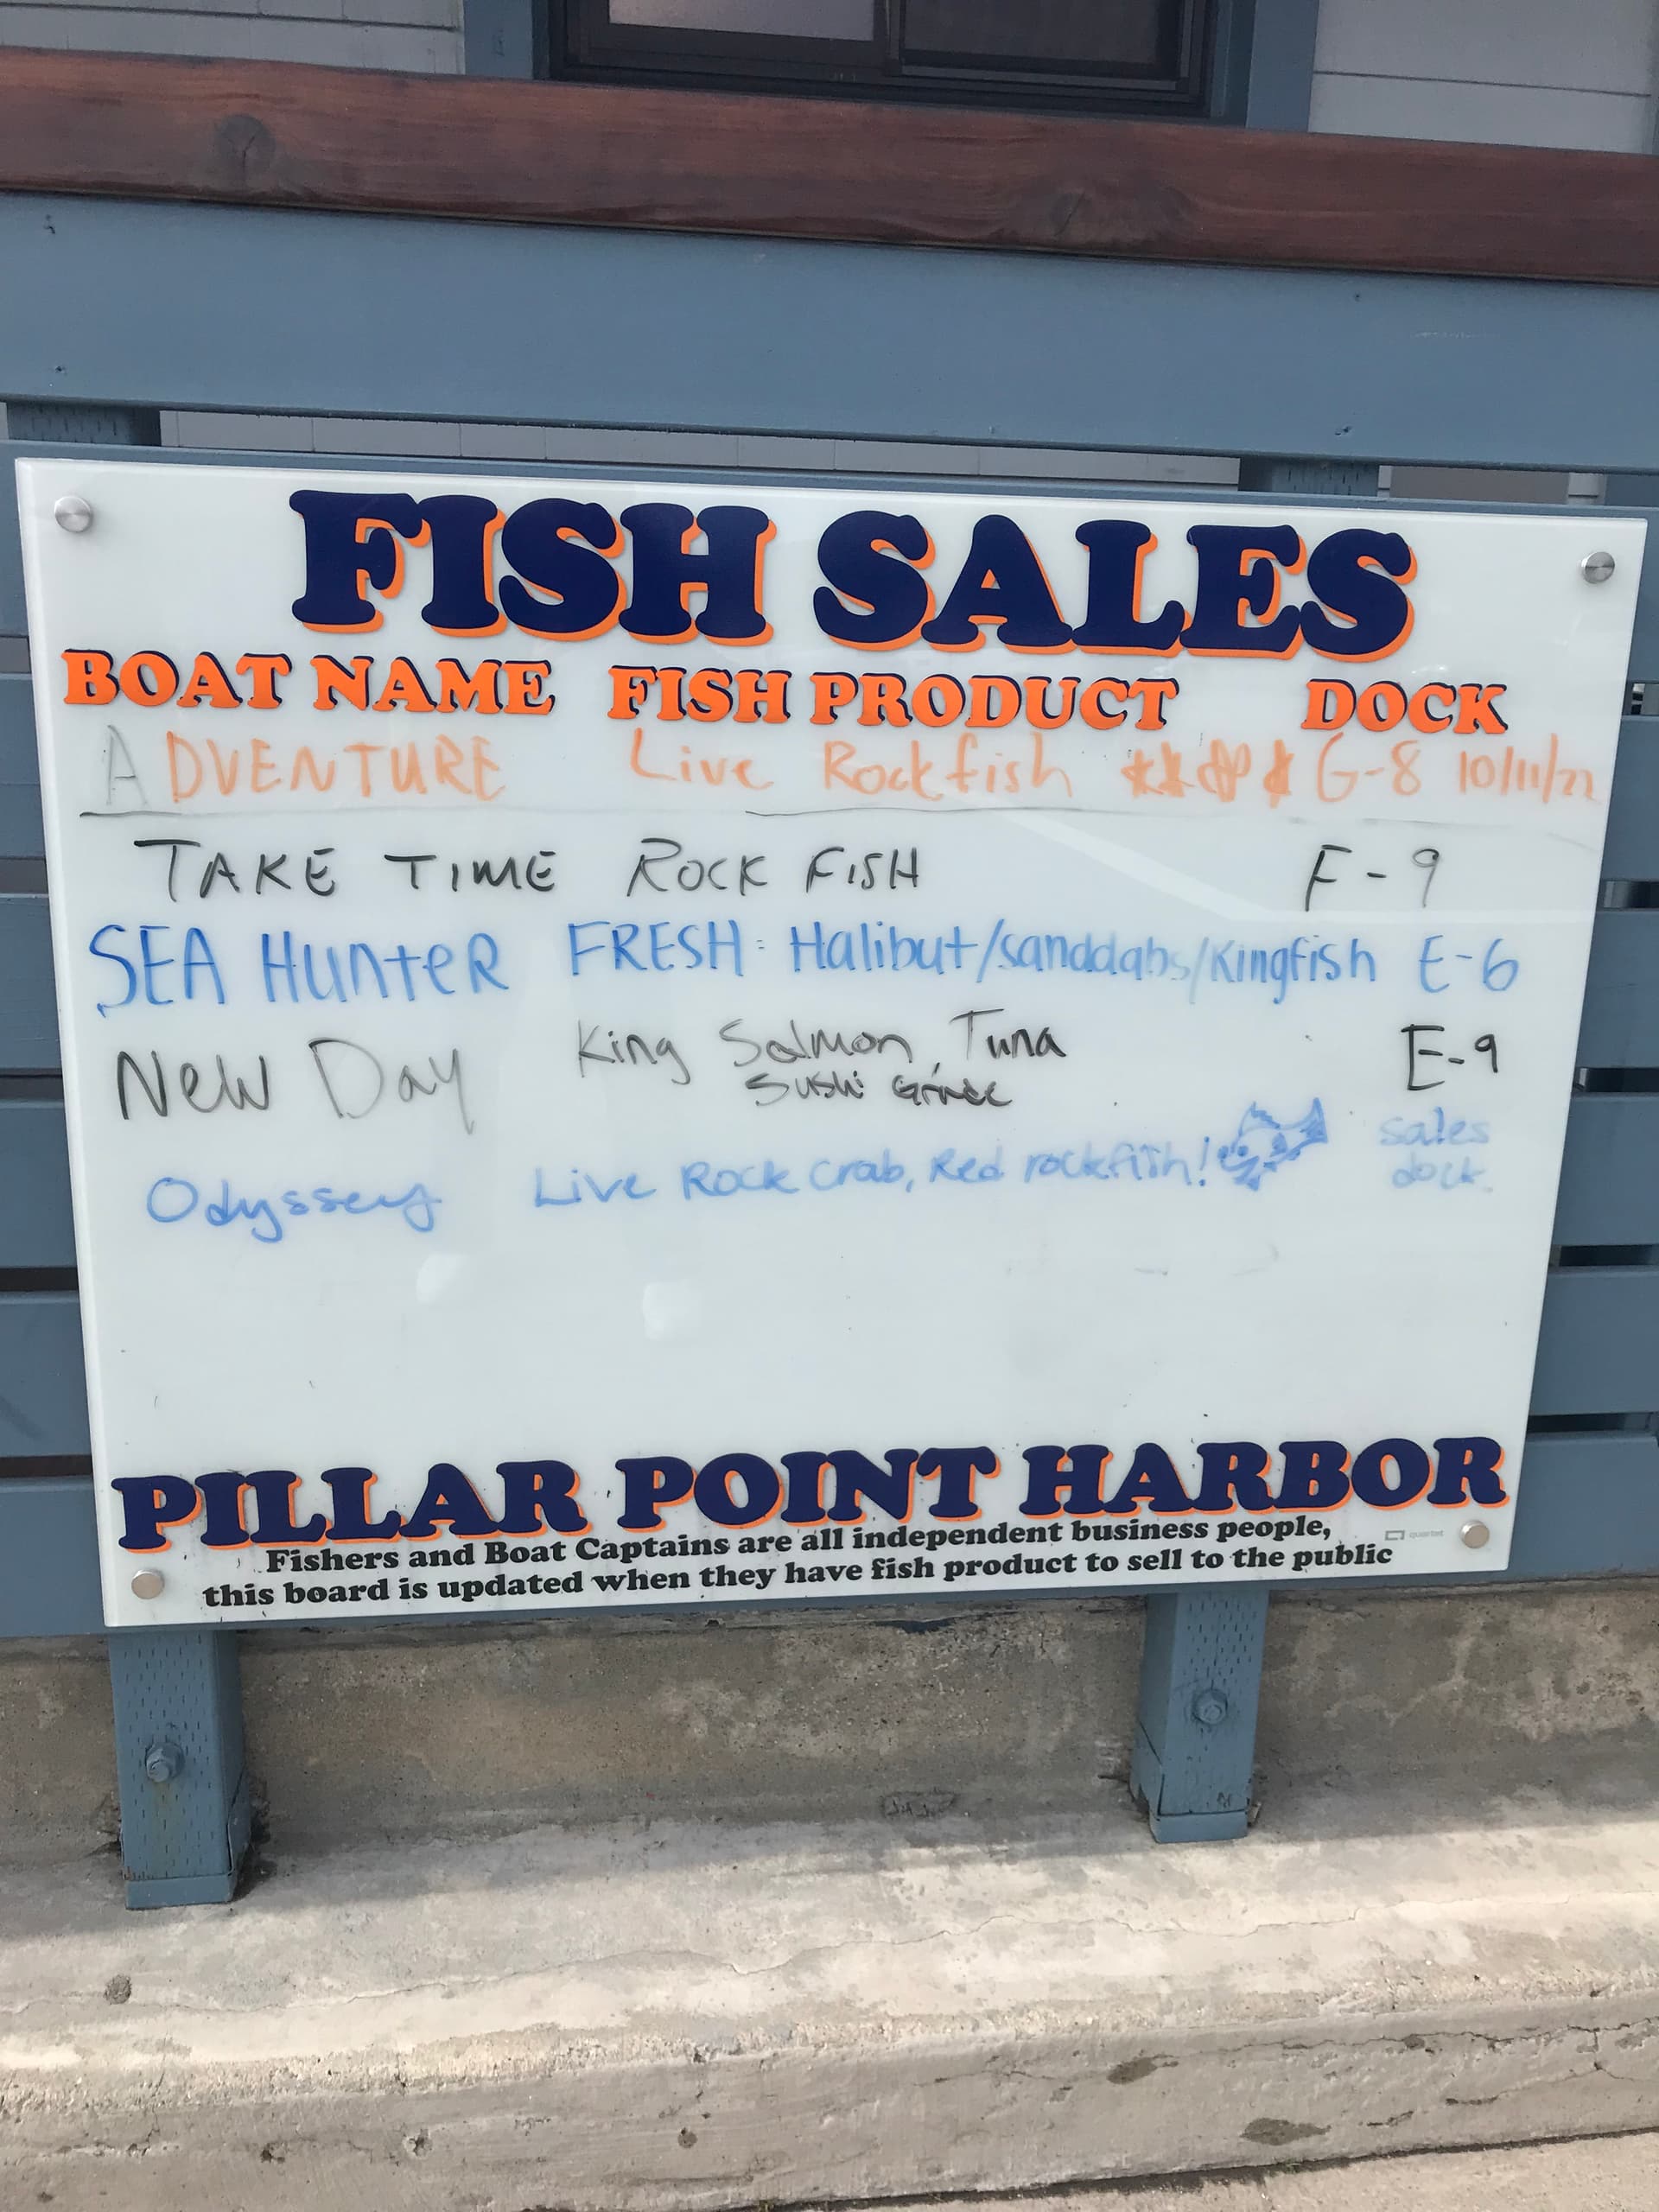 FISH SALES
BOAT NAME FISH PRODUCT DOCK
ADVENTURE Live Rockfish G-8 10/11/22
TAKE TIME ROCK FISH F-9
SEA HunteR FRESH: Halibut/sanddabs/Kingfish E-6
New Day King Salmon, Tuna E-9
Sushi Grade
Odyssey Live Rock crab, Red rockfish! sales dock
PILLAR POINT HARBOR
Fishers and Boat Captains are all independent business people,
this board is updated when they have fish product to sell to the public
quartet